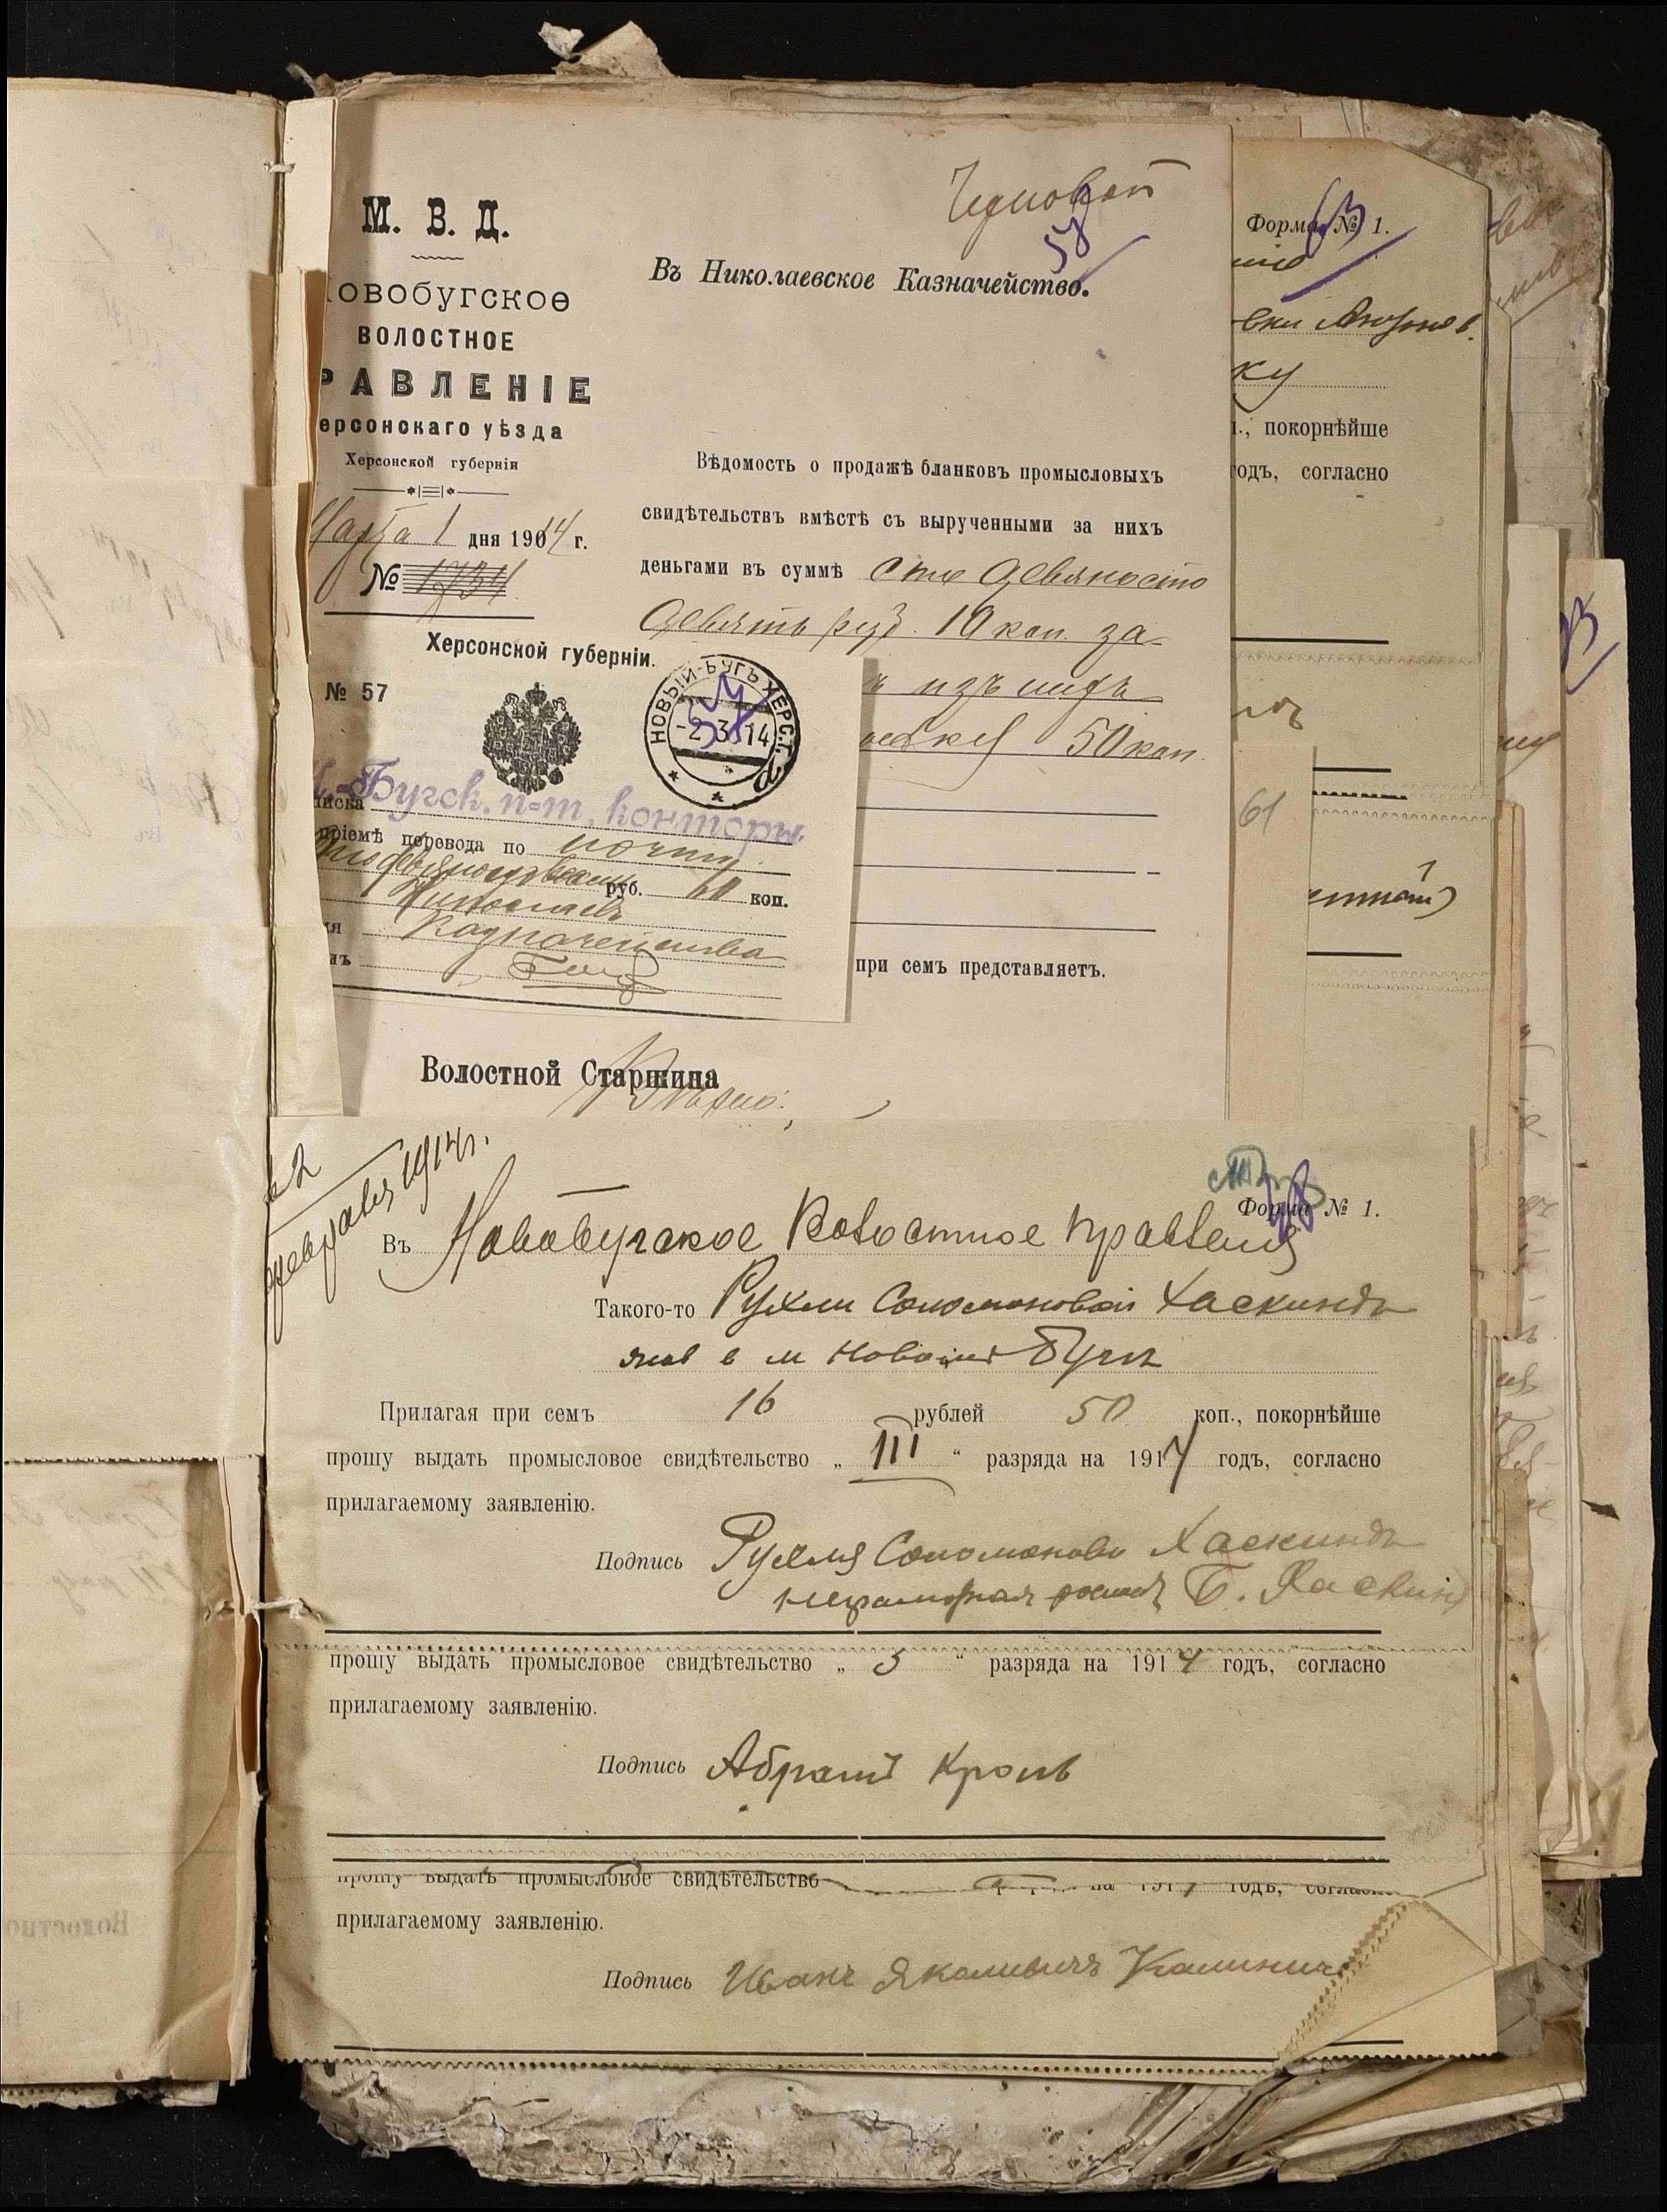 Черновой
58
М. В. Д.
Въ Николаевское Казначейство.
овобугское
ВОЛОСТНОЕ
РАВЛЕНІЕ
ерсонскаго уѣзда
Херсонской губерніи
Марта 1 дня 1914 г.
№ 1734
Вѣдомость о продажѣ бланковъ промысловыхъ
свидѣтельствъ вмѣстѣ съ вырученными за нихъ
деньгами въ суммѣ сто девяносто
девять руб. 10 коп. за
изъ нихъ
50 коп.
при семъ представляетъ.
Волостной Старшина
Херсонской губерніи.
№ 57
НОВЫЙ-БУГЪ ХЕРС. Г.
-2.3.14
57
Бугск. п-т. конторы
иска
пріемѣ перевода по почтѣ
руб. 60 коп.
Николаевъ
Казначейства
Форма № 1.
63
ку
., покорнѣйше
годъ, согласно
61
февраля 1914 г.
Форма № 1.
Въ Новобугское Волостное Правленія
Такого-то Рухли Соломоновой Хаскиндъ
жив в м Новый Бугъ
Прилагая при семъ 16 рублей 50 коп., покорнѣйше
прошу выдать промысловое свидѣтельство „ III “ разряда на 1914 годъ, согласно
прилагаемому заявленію.
Подпись Рухля Соломонова Хаскиндъ
неграмотная Б. Хаскинд
прошу выдать промысловое свидѣтельство „ 3 “ разряда на 1914 годъ, согласно
прилагаемому заявленію.
Подпись Абрамъ Кроль
прошу выдать промысловое свидѣтельство на 191 годъ, согласно
прилагаемому заявленію.
Подпись Иванъ Якалевичъ Калинич